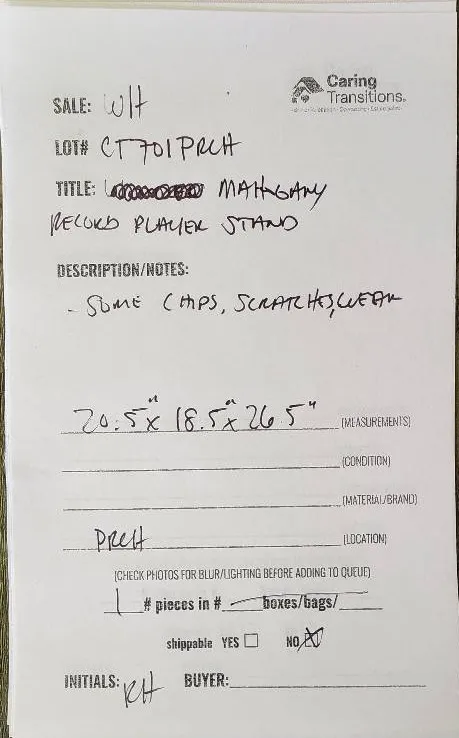 Caring
Transitions®
SALE: WH
LOT# CT701PRCH
TITLE: MAHOGANY
RECORD PLAYER STAND
DESCRIPTION/NOTES:
- SOME CHIPS, SCRATCHES, WEAR
20.5" x 18.5" x 26.5" (MEASUREMENTS)
(CONDITION)
(MATERIAL/BRAND)
PRCH (LOCATION)
(CHECK PHOTOS FOR BLUR/LIGHTING BEFORE ADDING TO QUEUE)
1 # pieces in # boxes/bags/
shippable YES NO
INITIALS: RH BUYER: